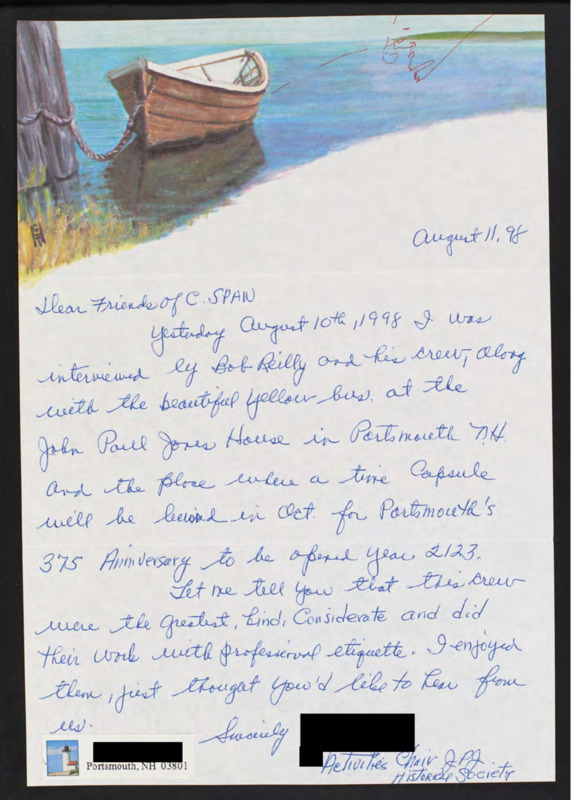 August 11, 98
Dear Friends of C. SPAN
Yesterday August 10th, 1998 I was
interviewed by Bob Reilly and his crew, along
with the beautiful yellow bus. at the
John Paul Jones House in Portsmouth N.H.
and the place where a time Capsule
will be buried in Oct. for Portsmouth's
375 Anniversary to be opened year 2123.
Let me tell you that this crew
were the greatest, kind, Considerate and did
their work with professional etiquette. I enjoyed
them, just thought you'd like to hear from
us.
Sincerely
Activities Chair JPJ
Historical Society
Portsmouth, NH 03801